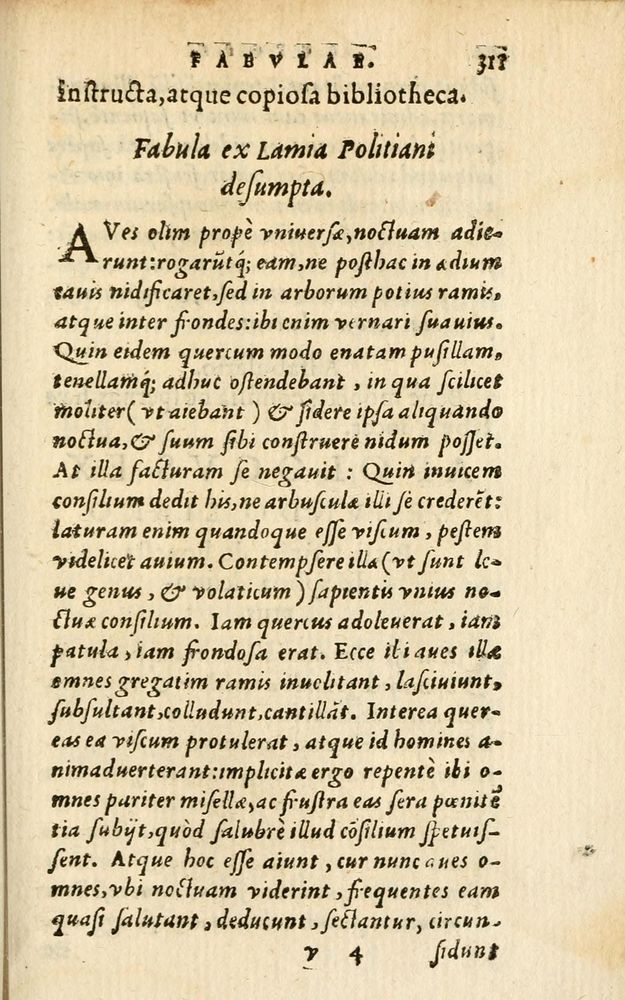 FABVLAE. 311
instructa, atque copiosa bibliotheca.
Fabula ex Lamia Politiani
desumpta.
AVes olim propè vniuersæ, noctuam adie-
runt: rogarūtq́; eam, ne posthac in ædium
cauis nidificaret, sed in arborum potius ramis,
atque inter frondes: ibi enim vernari suauius.
Quin eidem quercum modo enatam pusillam,
tenellamq́; adhuc ostendebant, in qua scilicet
moliter (vt aiebant) & sidere ipsa aliquando
noctua, & suum sibi construere nidum posset.
At illa facturam se negauit: Quin inuicem
consilium dedit his, ne arbusculæ illi se crederēt:
laturam enim quandoque esse viscum, pestem
videlicet auium. Contempsere illæ (vt sunt le-
ue genus, & volaticum) sapientis vnius no-
ctuæ consilium. Iam quercus adoleuerat, iam
patula, iam frondosa erat. Ecce ibi aues illæ
omnes gregatim ramis inuolitant, lasciuiunt,
subsultant, colludunt, cantillāt. Interea quer-
cus ea viscum protulerat, atque id homines a-
nimaduerterant: implicitæ ergo repentè ibi o-
mnes pariter misellæ, ac frustra eas sera pœnitē
tia subijt, quòd salubrè illud cōsilium spreuis-
sent. Atque hoc esse aiunt, cur nunc aues o-
mnes, vbi noctuam viderint, frequentes eam
quasi salutant, deducunt, sectantur, circun-
v 4 sidunt